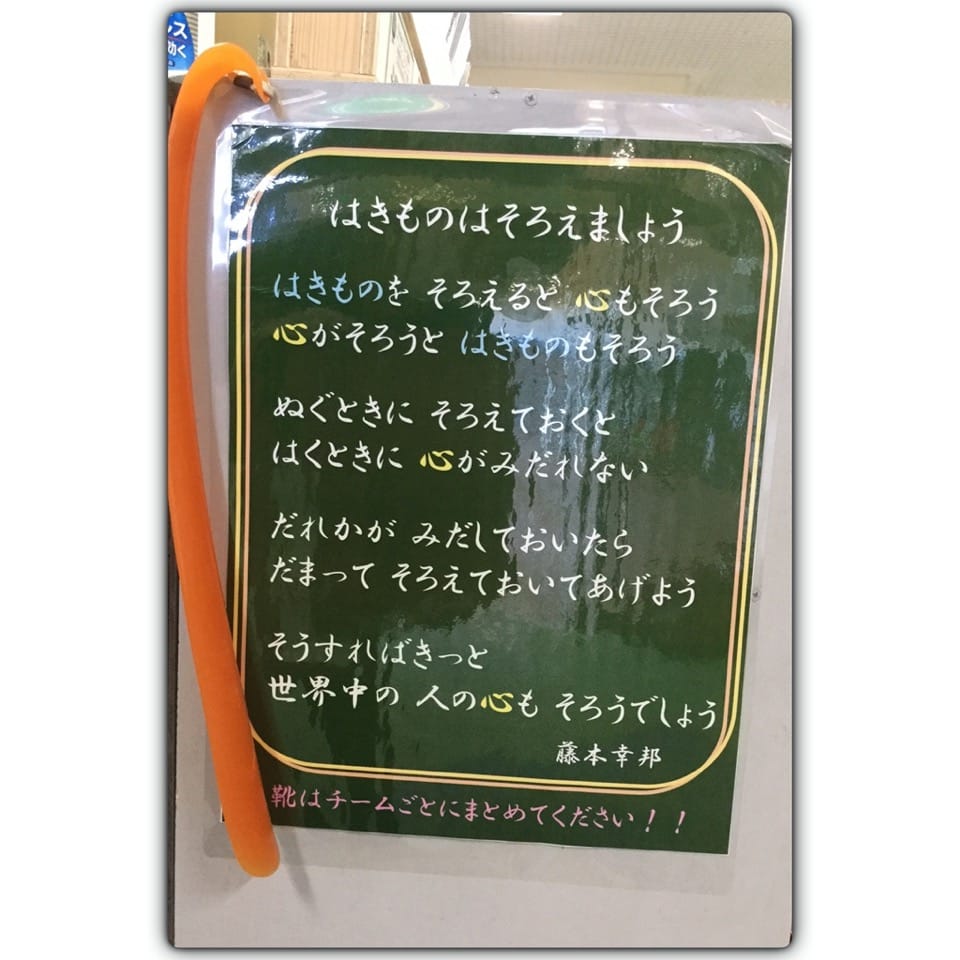 ンス
効く
はきものはそろえましょう
はきものを そろえると 心もそろう
心がそろうと はきものもそろう
ぬぐときに そろえておくと
はくときに 心がみだれない
だれかが みだしておいたら
だまって そろえておいてあげよう
そうすればきっと
世界中の 人の心も そろうでしょう
藤本幸邦
靴はチームごとにまとめてください!!